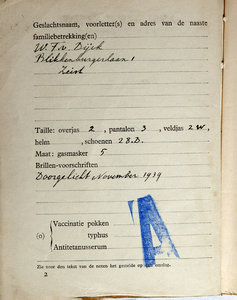 Geslachtsnaam, voorletter(s) en adres van de naaste
familiebetrekking(en)
W. F. v. Dijck
Blikkenburgerlaan 1
Zeist
Taille: overjas 2, pantalon 3, veldjas 2w,
helm, schoenen 28.D.
Maat: gasmasker 5
Brillen-voorschriften
Doorgelicht November 1939
(o) Vaccinatie pokken
typhus
Antitetanusserum
A
Zie voor den tekst van de noten het gestelde op den omslag.
2